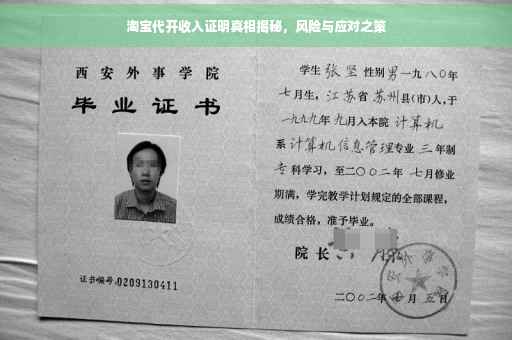 淘宝代开收入证明真相揭秘，风险与应对之策
西安外事学院
毕业证书
证书编号:0209130411
学生 张坚 性别 男 一九八〇年
七月生，江苏省 苏州县(市)人,于
一九九九年 九月入本院 计算机
系 计算机信息管理专业 三 年制
专 科学习，至二〇〇二年 七月修业
期满，学完教学计划规定的全部课程，
成绩合格，准予毕业。
院长
二〇〇二年 七 月 五 日